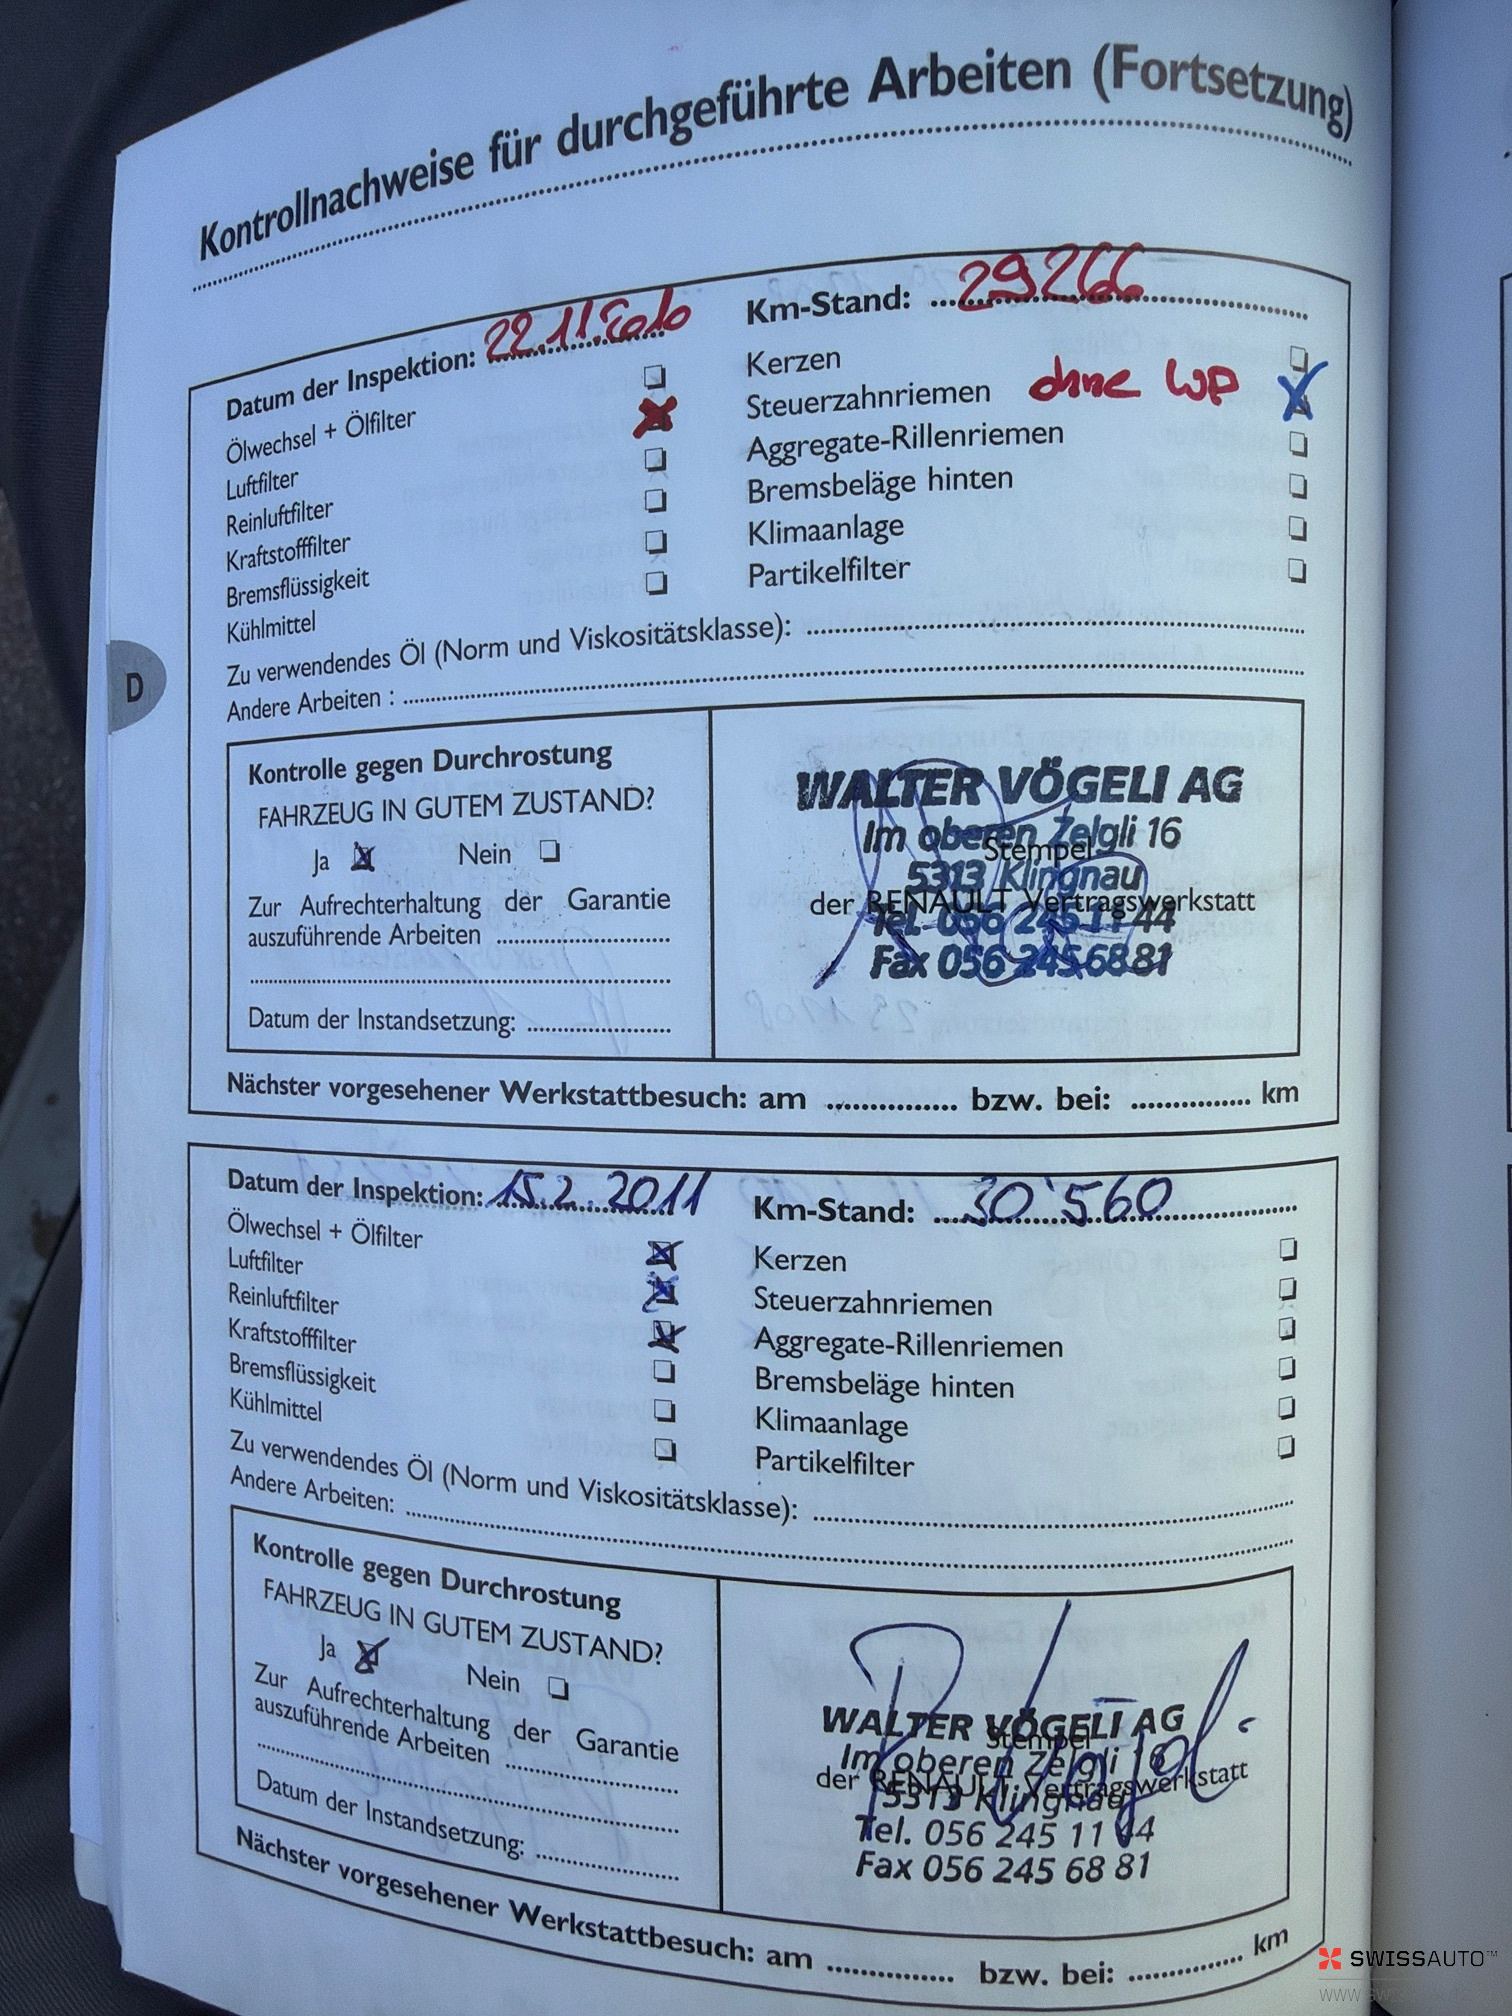 Kontrollnachweise für durchgeführte Arbeiten (Fortsetzung)
Datum der Inspektion: 22.11.2010 Km-Stand: 29266
Ölwechsel + Ölfilter Kerzen
Luftfilter Steuerzahnriemen ohne WP
Reinluftfilter Aggregate-Rillenriemen
Kraftstofffilter Bremsbeläge hinten
Bremsflüssigkeit Klimaanlage
Kühlmittel Partikelfilter
Zu verwendendes Öl (Norm und Viskositätsklasse):
Andere Arbeiten :
D
Kontrolle gegen Durchrostung
FAHRZEUG IN GUTEM ZUSTAND?
Ja Nein
Zur Aufrechterhaltung der Garantie
auszuführende Arbeiten
Datum der Instandsetzung:
WALTER VÖGELI AG
Im oberen Zelgli 16
Stempel
5313 Klingnau
der RENAULT Vertragswerkstatt
Tel. 056 245 11 44
Fax 056 245 68 81
Nächster vorgesehener Werkstattbesuch: am bzw. bei: km
Datum der Inspektion: 15.2.2011 Km-Stand: 30'560
Ölwechsel + Ölfilter Kerzen
Luftfilter Steuerzahnriemen
Reinluftfilter Aggregate-Rillenriemen
Kraftstofffilter Bremsbeläge hinten
Bremsflüssigkeit Klimaanlage
Kühlmittel Partikelfilter
Zu verwendendes Öl (Norm und Viskositätsklasse):
Andere Arbeiten:
Kontrolle gegen Durchrostung
FAHRZEUG IN GUTEM ZUSTAND?
Ja Nein
Zur Aufrechterhaltung der Garantie
auszuführende Arbeiten
Datum der Instandsetzung:
WALTER VÖGELI AG
Stempel
Im oberen Zelgli 16
der RENAULT Vertragswerkstatt
5313 Klingnau
Tel. 056 245 11 44
Fax 056 245 68 81
Nächster vorgesehener Werkstattbesuch: am bzw. bei: km
SWISSAUTO™